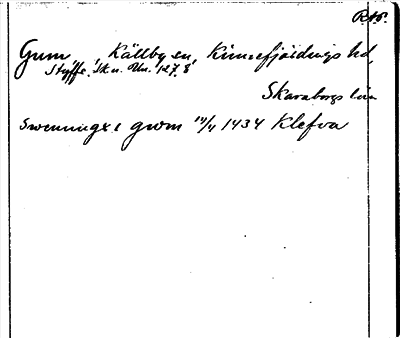 RAP.
Gum, Källby sn, Kinnefjärdings hd,
Styffe, Sk. u. Un. 127.
Skaraborgs län
Swenungx i gwm 14/4 1434 Klefva